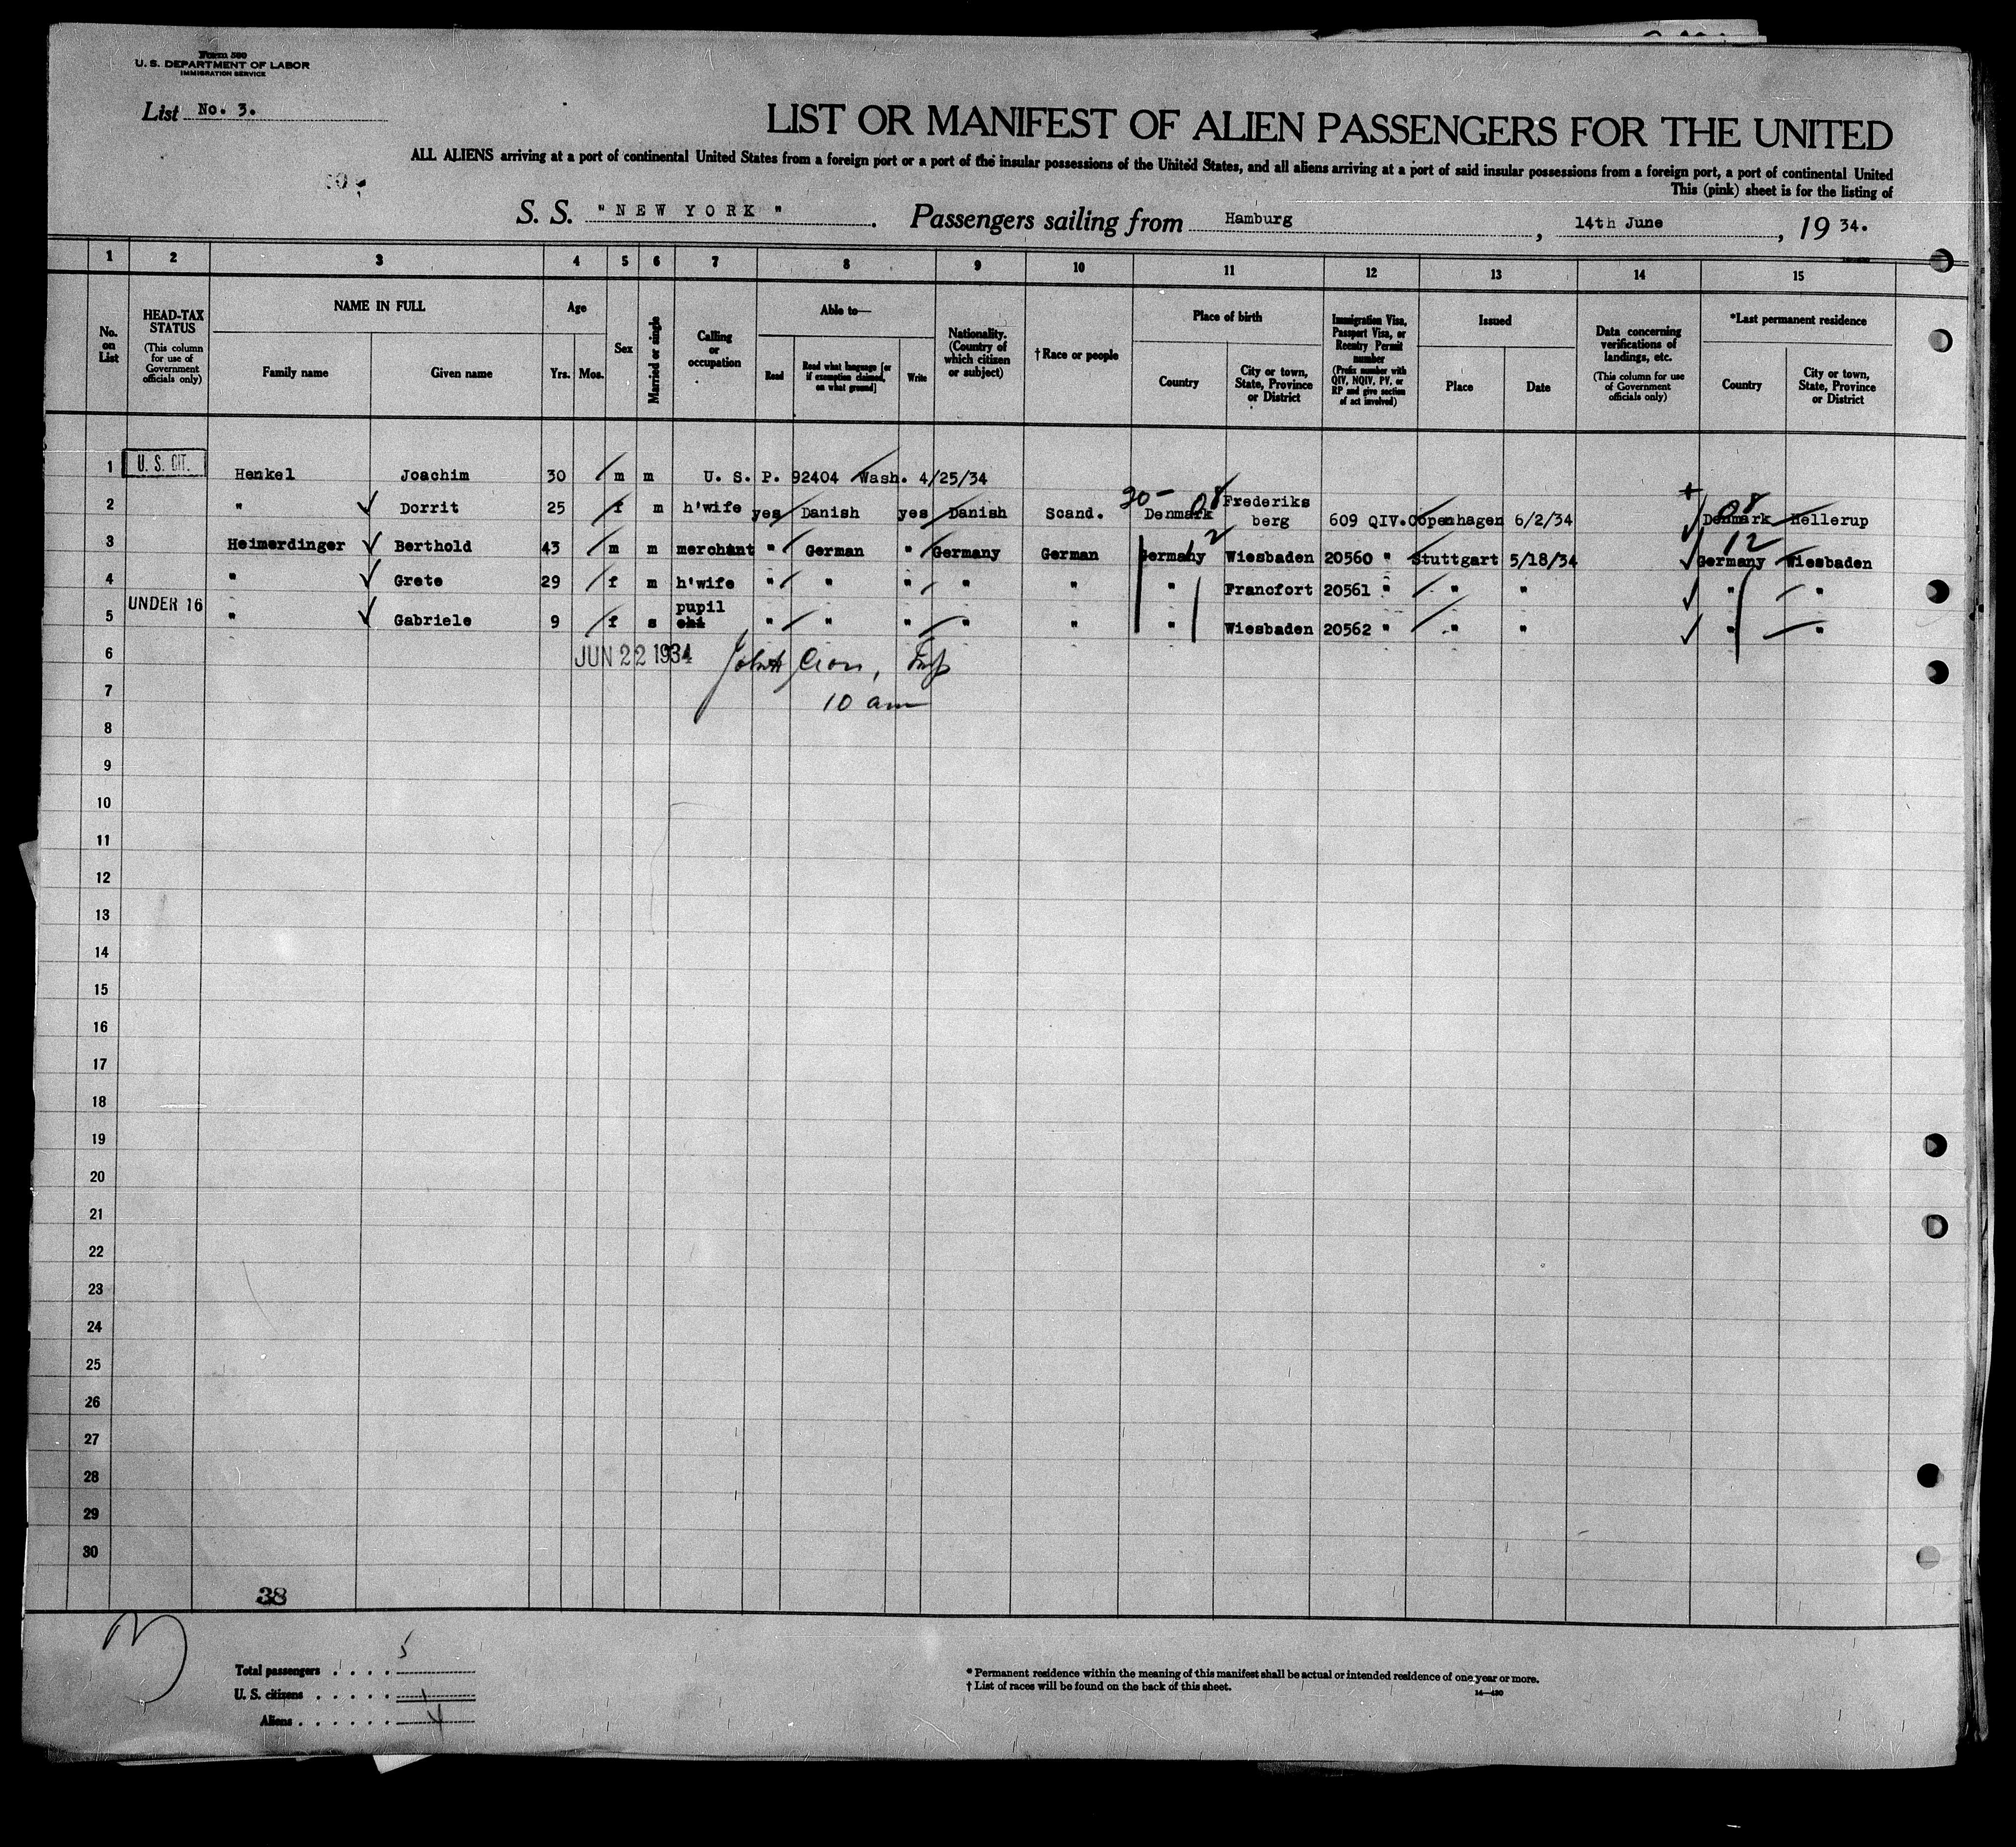 Form 500
U. S. DEPARTMENT OF LABOR
IMMIGRATION SERVICE
List No. 3.
LIST OR MANIFEST OF ALIEN PASSENGERS FOR THE UNITED
ALL ALIENS arriving at a port of continental United States from a foreign port or a port of the insular possessions of the United States, and all aliens arriving at a port of said insular possessions from a foreign port, a port of continental United
This (pink) sheet is for the listing of
S. S. "NEW YORK". Passengers sailing from Hamburg, 14th June, 19 34.
1 2 3 4 5 6 7 8 9 10 11 12 13 14 15
No. on List
HEAD-TAX STATUS (This column for use of Government officials only)
NAME IN FULL
Family name Given name
Age
Yrs. Mos.
Sex
Married or single
Calling or occupation
Able to—
Read Read what language [or if exemption claimed, on what ground] Write
Nationality. (Country of which citizen or subject)
† Race or people
Place of birth
Country City or town, State, Province or District
Immigration Visa, Passport Visa, or Reentry Permit number (Prefix number with QIV, NQIV, PV, or RP and give section of act involved)
Issued
Place Date
Data concerning verifications of landings, etc. (This column for use of Government officials only)
*Last permanent residence
Country City or town, State, Province or District
1 U. S. CIT. Henkel Joachim 30 m m U. S. P. 92404 Wash. 4/25/34
2 " Dorrit 25 f m h'wife yes Danish yes Danish Scand. 30- Denmark 08 Frederiks berg 609 QIV. Copenhagen 6/2/34 Denmark 08 Hellerup
3 Heimerdinger Berthold 43 m m merchant " German " Germany German Germany 12 Wiesbaden 20560 " Stuttgart 5/18/34 Germany 12 Wiesbaden
4 " Grete 29 f m h'wife " " " " " " Francfort 20561 " " " " "
5 UNDER 16 " Gabriele 9 f s pupil " " " " " " Wiesbaden 20562 " " " " "
6 JUN 22 1934
7 10 am
8
9
10
11
12
13
14
15
16
17
18
19
20
21
22
23
24
25
26
27
28
29
30
38
Total passengers . . . . 5
U. S. citizens . . . . . 1
Aliens . . . . . . 4
* Permanent residence within the meaning of this manifest shall be actual or intended residence of one year or more.
† List of races will be found on the back of this sheet.
14—430